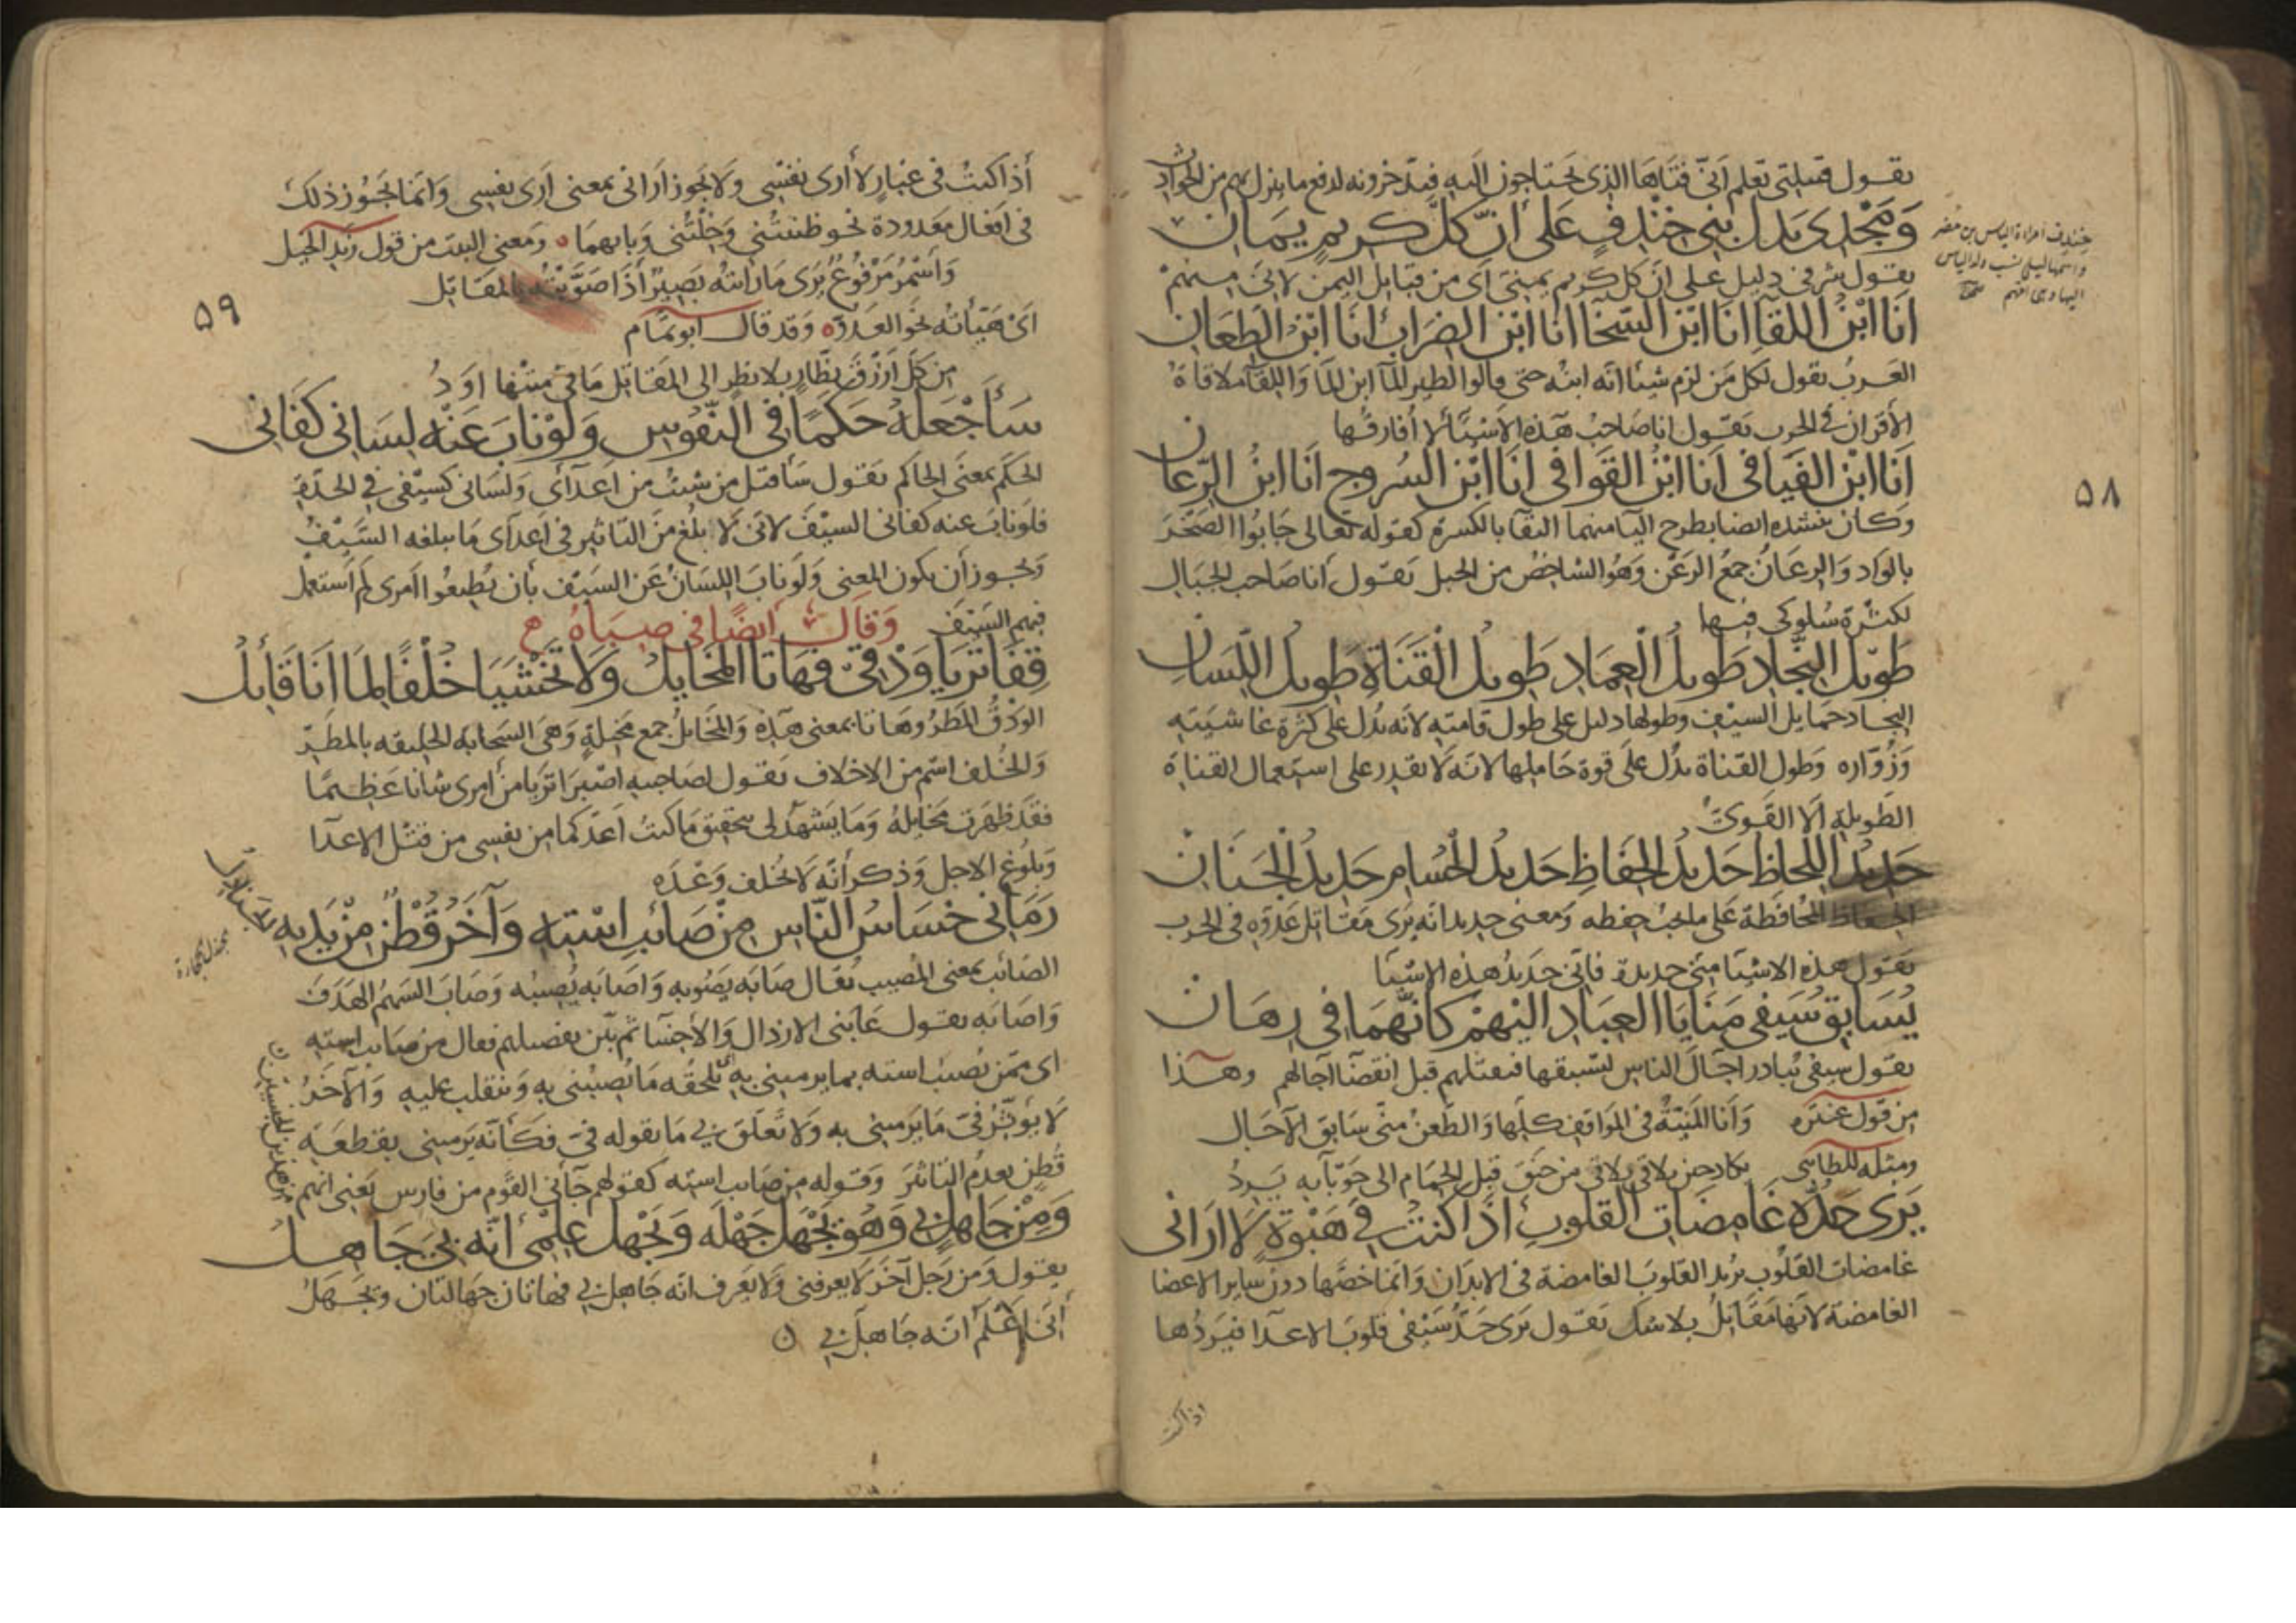 يقول قبيلتي تعلم أنّي فتاها الذي يحتاجون اليه فيدّخرونه لدفع ما ينزل بهم من الحوادث
وَمَجْدِي يَدل بني خِنْدِفٍ عَلَى أنّ كلّ كريم يَمَان
يقول شرفي دليل على ان كل كريم يمنيّ اي من قبايل اليمن لانّي منهم
خندف امراة الياس بن مضر
واسمها ليلى نسب ولد الياس
اليها وهي امهم
أنَا ابْنُ اللقَآ اَنا ابْن السّخَا أنا ابْن الضرَاب أنَا ابْن الطعَان
العرب تقول لكل من لزم شيئا انه ابنه حتى قالوا لطير المآ ابن المآ وَاللقآ ملاقاة
الأقران في الحرب يقول انا صَاحب هذه الاشيآ لا أفارقها
أنا ابْن الفيَافي أنا ابْنُ القوَافي أنَا ابْن السُروج أنَا ابنُ الرّعَان
وكان ينشده ايضا بطرح اليآ منهما اكتفآ بالكسرة كقوله تعالى جَابُوا الصَخْرَ
بالوَاد وَالرعَانُ جمعُ الرَعْن وَهُوَ الشاخصُ من الجبل يَقول أنا صَاحب الجبَال
لكثرة سُلوكي فيها
٥٨
طَوِيل النِّجَاد طَويلُ الْعِمَاد طَويلُ الْقَنَاةِ طَويلُ اللّسَان
النجاد حمَايل السيْف وطولها دليل على طول قامته لانه يدل على كثرة غاشيته
وَزُوّاره وَطول القناة يدُل عَلى قوة حَاملها لانه لا يقدر على استعمال القناة
الطويلة الا القَويّ
حَديدُ اللحاظ حَديدُ الحِفاظِ حَديدُ الحُسَام حَديدُ الجَنَان
الحفاظ المحافظة عَلى ما يجبُ حفظه وَمعنى حديد انه يَرى مَقاتل عَدوّه في الحرب
يَقول هذه الاشيَا منّي حديدة فانّي حَديدُ هذه الاشيا
يُسَابق سَيفي مَنَايَا العبَاد اليْهمْ كأنّهُمَا في رهَان
يقول سيفي يُبادر اجَال الناس ليسبقها فيقتلهم قبل انقضا آجالهم وهَذا
من قول عنتره وَأنا المنيّة في المَوَاقف كلّها وَالطعن منّي سَابق الآجَال
ومثله للطائي يكاد حين يلاقي من حَنَق قبل الحِمَام الى حَوْبآيه يَرِدُ
يَرَى حَدُّه غَامضَات القُلوب اذا كنتُ في هَبْوَةٍ لا ارَاني
غامضات القلوْب يريد القلوبَ الغامضة في الابدَان وَانما خصّها دون ساير الاعضا
الغامضة لانّها مقَاتل بلا شك يَقول يَرى حَدُّ سَيْفي قلوبَ الاعدا فيَردُها
اذا كنت
أذا كنتُ في غبارٍ لا أرى نفسي وَلا يجوز أراني بمعنى أرى نفسي وَانما يجوز ذلك
في افعَال معَدودة نحو ظننتُني وَخِلْتُني وَبابهما وَمعنى البيت من قول زيد الخيل
وَاسْمَرُ مَرْفُوعٌ يَرى مَا رَايتُه بَصِيرٌ اذَا صَوّبْتُه بالمقَاتل
ايْ هيّأته نحو العدوّ وَقد قال ابو تمّام
٥٩
من كل أزرَق نظّارٍ بلا نظرٍ الى المقَاتل مَا في مَتْنها اوَدُ
سَأجْعَلهُ حَكَمًا في النّفُوس وَلوْ نابَ عَنْه لِسَاني كفَاني
الحكَم بمعنى الحاكم يَقول سَأقتل من شئتُ من اعدآئي وَلسَاني كسيْفي في الحدّة
فلو نابَ عنه كفاني السيْفَ لانّي لا بلغ منَ التاثير في اعدآي مَا يبلغه السَّيْفُ
وَيجوز أن يكون المعنى وَلو نابَ اللسَانُ عَن السَيْف بأن يُطيعُوا امري لم أستعمل
فيهم السَيْفَ وَقال ايضًا في صباهُ
قِفَا تَرَيَا وَدْقي فهَاتَا المَخَايلُ وَلا تَخْشَيَا خُلْفًا لِمَا أنَا قَائِلُ
الوَدْقُ المَطَرُ وَهَاتا بمعنى هَذه وَالمخَايلُ جمع مَخيلة وَهيَ السَحابة الخليقة بالمطَر
وَالخُلف اسْم من الاخلاف يَقول لصَاحبيه اصْبرَا تَرَيا من أمري شانا عَظيمًا
فقد ظهَرت مَخايلهُ وَمَا يَشهدُ لي بتحقيق مَا كنتُ أعدُكما من نفسي من قتْل الاعدا
وَبلوغ الاجل وَذكر أنّه لا يخلف وَعْدَه
رَمَاني خسَاسُ النّاس مِنْ صَائِبِ اسْتِه وَآخَرُ قُطْنٌ مِنْ يَدَيه الجنَادلُ
الصَائب بمعنى المُصيب يقال صَابَه يَصُوبه وَاصَابه يُصيبُه وَصَابَ السَهمُ الهَدَفَ
وَاصَابه يقول عَابَني الارذال وَالأخسّا ثم بيّن تفصيلهم فقال من صَايب استه
اي ممّن يُصيبُ استه بما يرميني به يَلحقه مَا يُصيبُني به وَينقلب عليه وَالآخَرُ
لا يُؤثّرُ فيّ مَا يَرميني به وَلا تَعلّقَ لي مَا يقوله فيّ فكَأنّه يَرميني بقطعَة
قُطن بعدَم التاثيْر وَقَوله من صَايب استه كقولهم جآني القوم من فارس يَعني انهم
وَمِنْ جَاهلٍ بي وَهُوَ يَجْهَل جَهْلَه وَيَجْهَل عِلْمي أنّه بيَ جَاهلُ
يقول وَمن رَجل آخَر لا يعرفني وَلا يَعرف انّه جَاهل بي فهاتان جَهالتان وَيجهلُ
أنّي أعْلَمُ انّه جَاهل بي